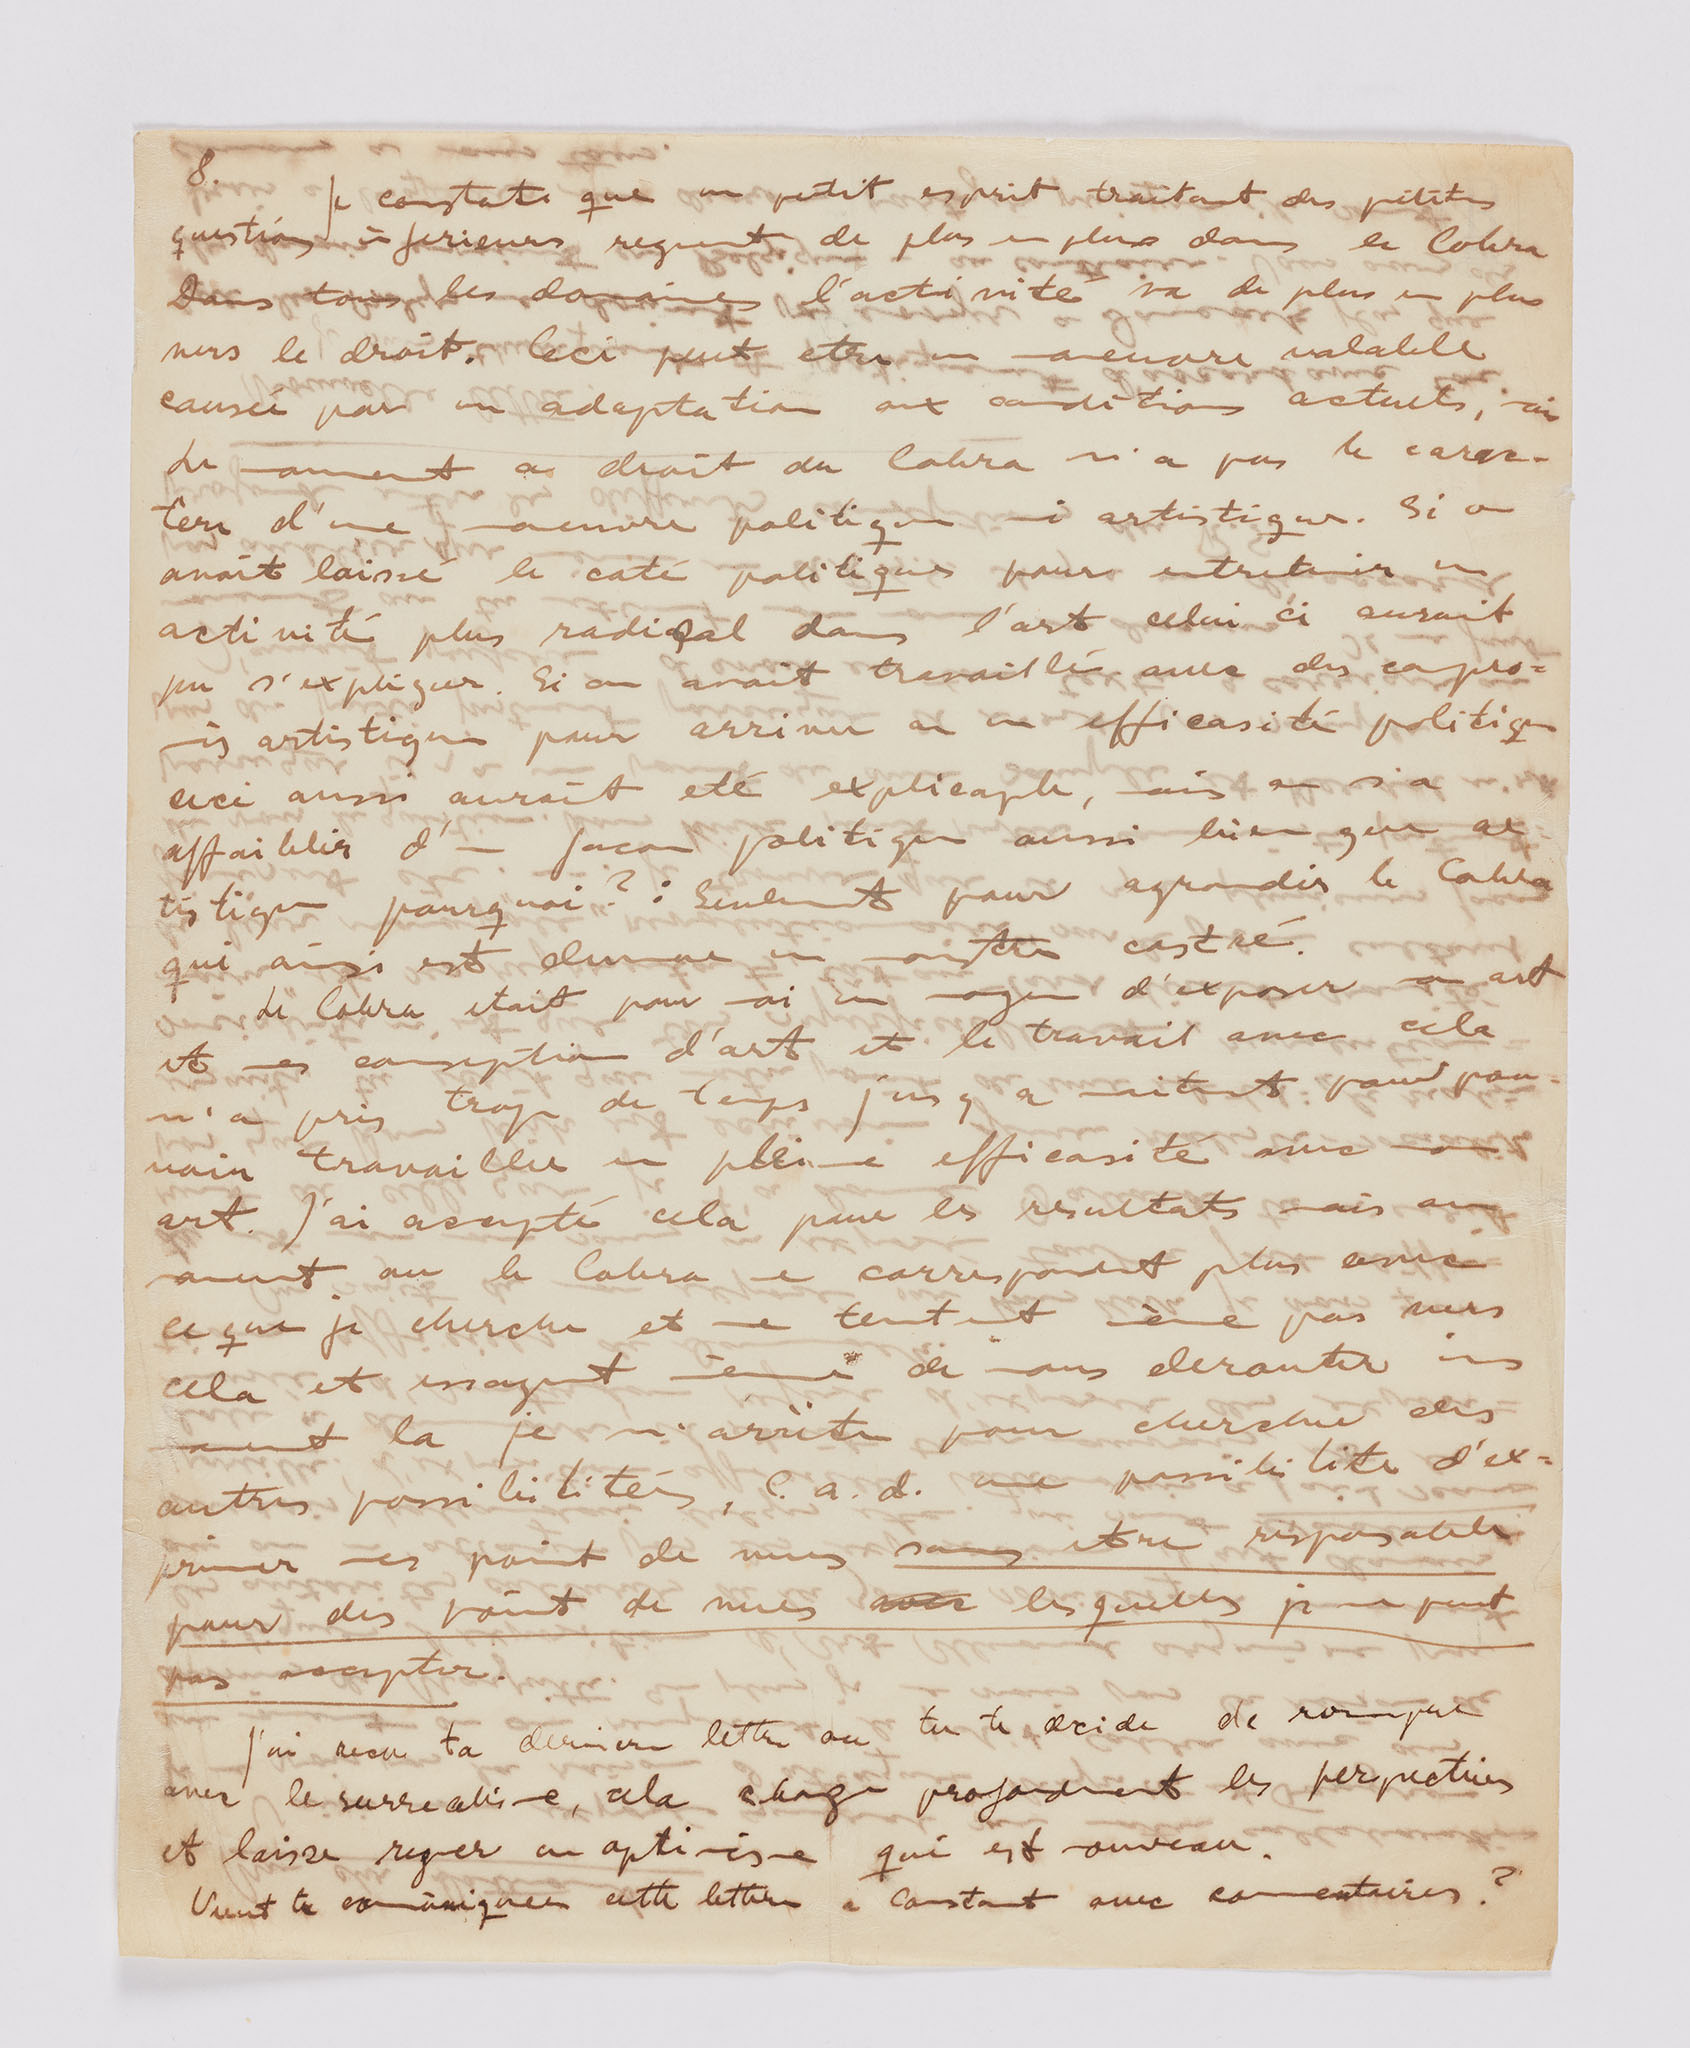 8.
Je constate que un petit esprit traitant des petites
questions inferieurs regnent de plus en plus dans le Cobra
Dans tous les domaines l'activité va de plus en plus
vers le droit. Ceci peut etre un maneuvre valable
causée par un adaptation aux conditions actuels, mais
Le moment a droit du Cobra n'a pas le carac-
tère d'une maneuvre politique ni artistique. Si on
avait laissé le coté politiques pour entretenir un
activité plus radical dans l'art celui ci aurait
pu s'expliquer. Si on avait travaillé avec des compro=
mis artistiques pour arriver a un efficasité politique
ceci aussi aurait eté explicaple, mais on s'a
affaiblir d'un facon politique aussi bien que ar
tistique pourquoi? : Seulement pour agrandir le Cobra
qui ainsi est devenue un monstre castré.
Le Cobra etait pour moi un moyen d'exposer mon art
et mes conseption d'art et le travail avec cela
m'a pris trop de temps jusq a maitenant pour pou-
voir travailler en pleine efficasité avec mon
art. J'ai accepté cela pour les resultats mais au
moment ou le Cobra ne correspondent plus avec
ce que je cherche et ne tentent même pas vers
cela et essayent même de nous derouter
moment la je m'arrête pour cherche des
autres possibilités, C.a.d. une possibilité d'ex=
primer mes point de vues sans etre responsable
pour des point de vues lesquelles je ne peut
pas accepter.
J'ai recu ta derniere lettre ou tu te decide de rompre
avec le surrealisme, cela change profondment les perpectives
et laisse regner un optimisme qui est nouveau.
Veut tu communiquer cette lettre a Constant avec comentaires?